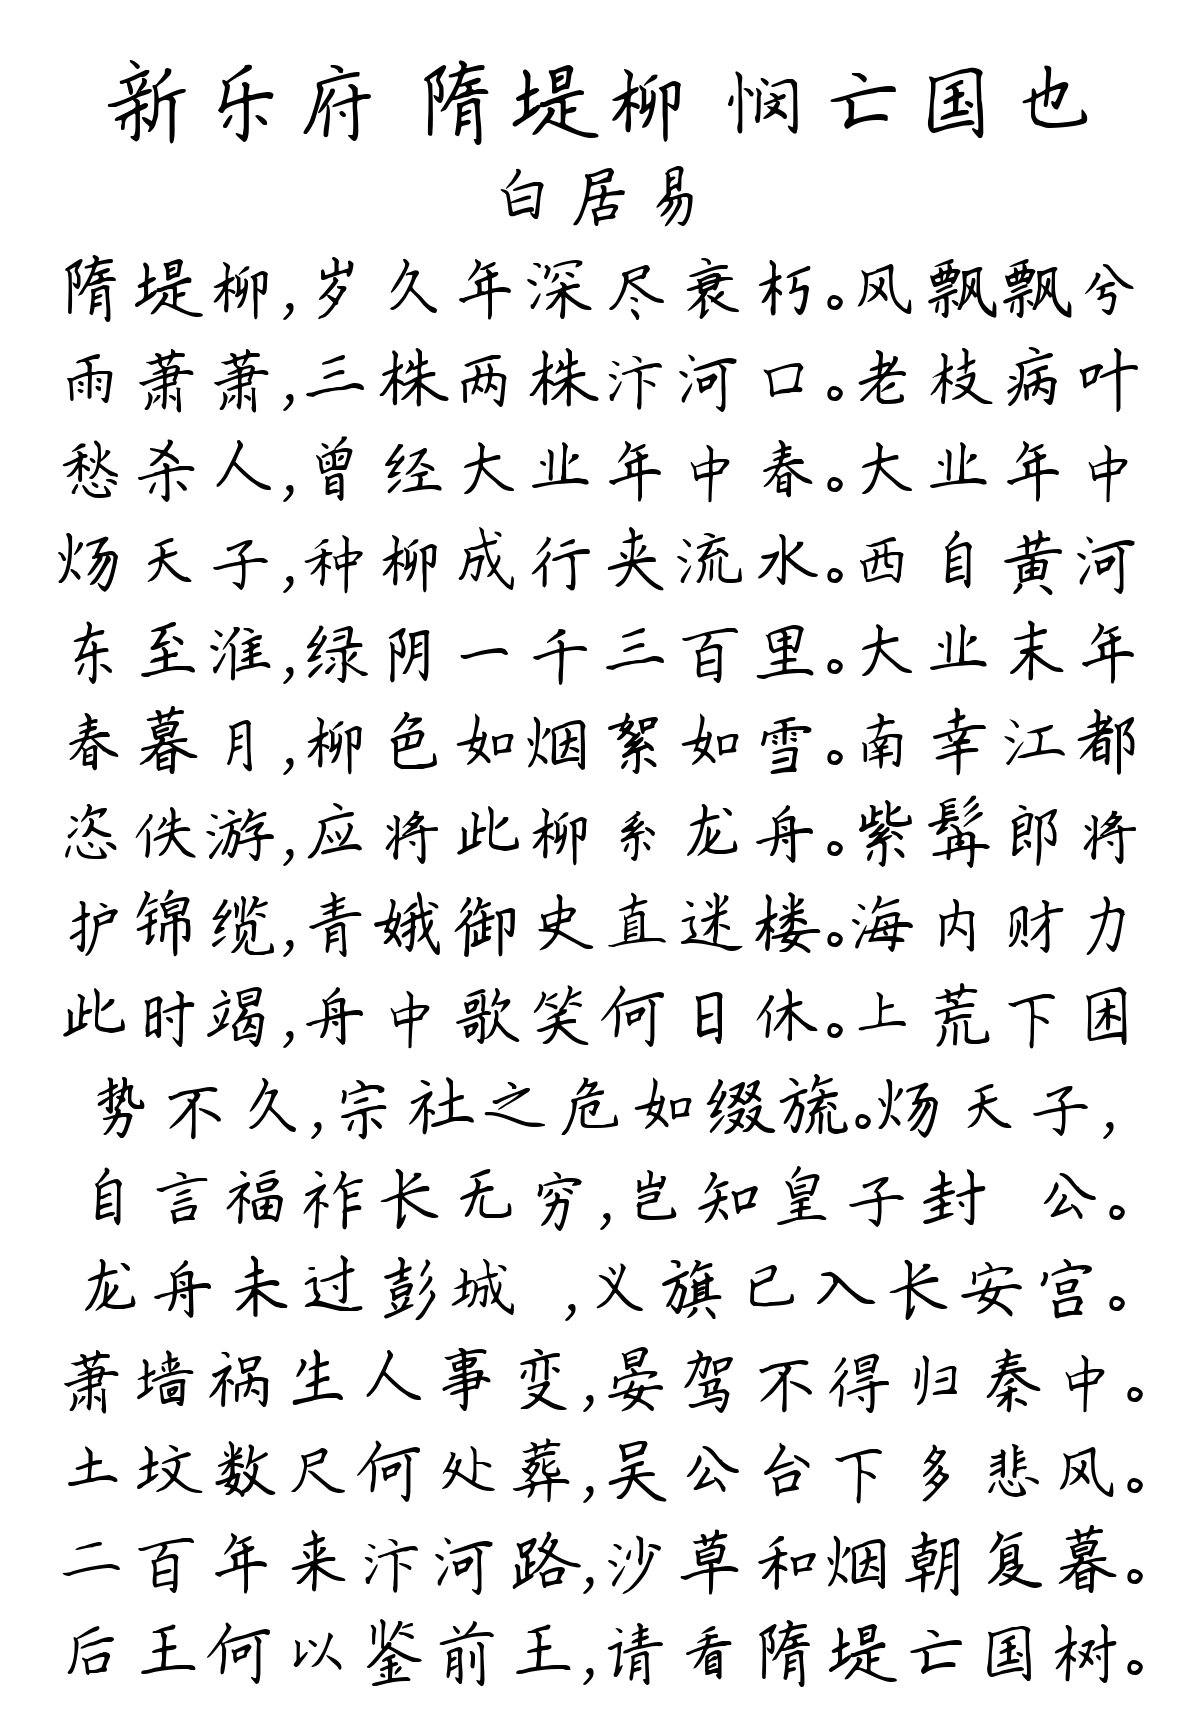 新乐府 隋堤柳 悯亡国也
白居易
隋堤柳,岁久年深尽衰朽。风飘飘兮
雨萧萧,三株两株汴河口。老枝病叶
愁杀人,曾经大业年中春。大业年中
炀天子,种柳成行夹流水。西自黄河
东至淮,绿阴一千三百里。大业末年
春暮月,柳色如烟絮如雪。南幸江都
恣佚游,应将此柳系龙舟。紫髯郎将
护锦缆,青娥御史直迷楼。海内财力
此时竭,舟中歌笑何日休。上荒下困
势不久,宗社之危如缀旒。炀天子,
自言福祚长无穷,岂知皇子封 公。
龙舟未过彭城 ,义旗已入长安宫。
萧墙祸生人事变,晏驾不得归秦中。
土坟数尺何处葬,吴公台下多悲风。
二百年来汴河路,沙草和烟朝复暮。
后王何以鉴前王,请看隋堤亡国树。